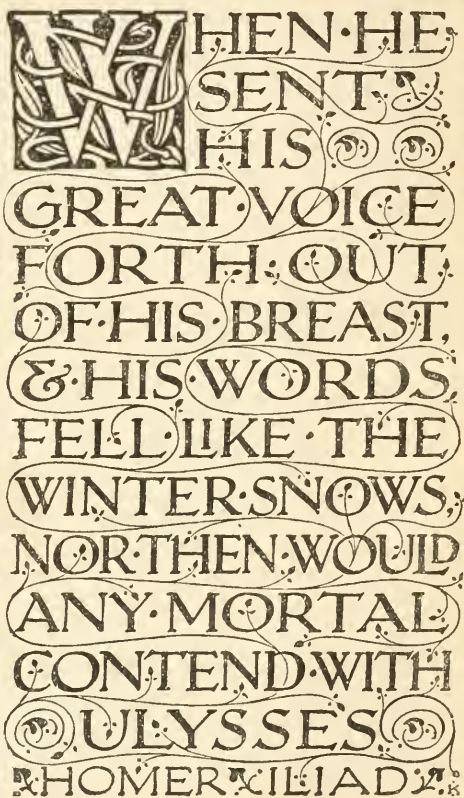 WHEN·HE
SENT
HIS
GREAT·VOICE
FORTH·OUT
OF·HIS·BREAST,
&·HIS·WORDS
FELL·LIKE·THE
WINTER·SNOWS,
NOR·THEN·WOULD
ANY·MORTAL
CONTEND·WITH
ULYSSES
HOMER ILIAD